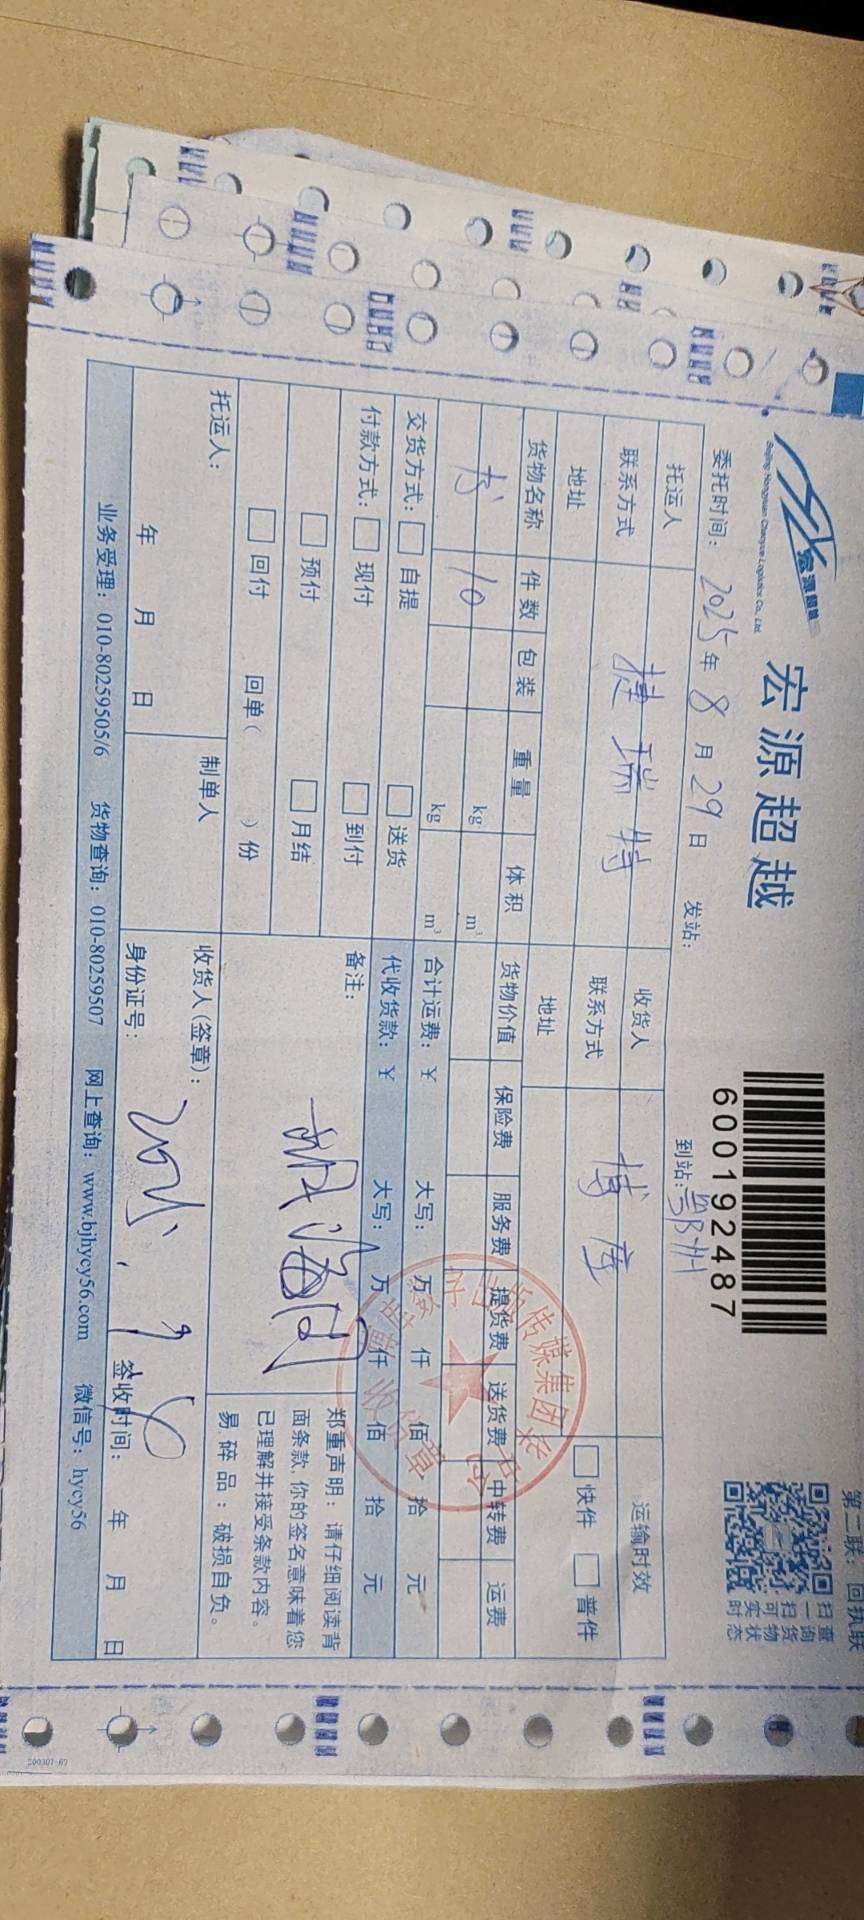 宏源超越
Beijing Hongyuan Chaoyue Logistics Co., Ltd.
宏源超越
600192487
第二联：回执联
扫一扫可实时
查询货物状态
委托时间：2025年8月29日 发站： 到站：鄂州
托运人 捷瑞特 收货人 博库 运输时效
联系方式 联系方式 快件 普件
地址 地址
货物名称 件数 包装 重量 体积 货物价值 保险费 服务费 提货费 送货费 中转费 运费
书 10 kg m³
kg m³
交货方式： 自提 送货 合计运费：￥ 大写： 万 仟 佰 拾 元
付款方式： 现付 到付 代收货款：￥ 大写： 万 仟 佰 拾 元
预付 月结 备注：
回付 回单( )份
郑重声明：请仔细阅读背
面条款,你的签名意味着您
已理解并接受条款内容。
易碎品：破损自负。
托运人： 制单人 收货人(签章)：
年 月 日 身份证号： 签收时间： 年 月 日
2025.9.6
业务受理：010-80259505/6 货物查询：010-80259507 网上查询：www.bjhycy56.com 微信号：hycy56